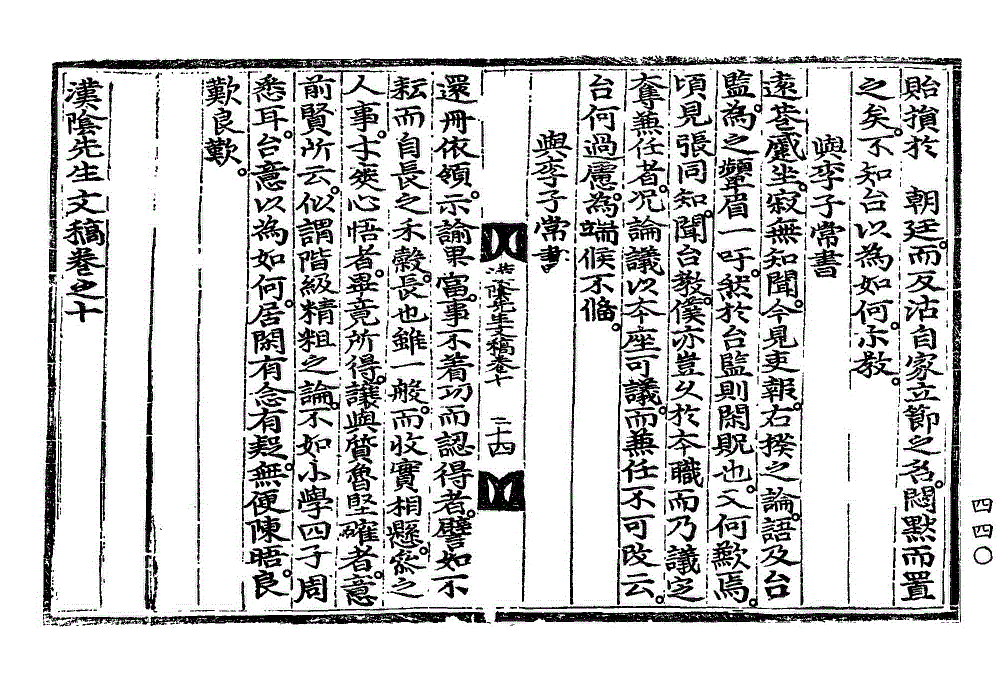 貽損於　朝廷而反沽自家立節之名悶默而置
之矣不知台以為如何示教
與李子常書
遠荅感坐寂無知聞今見吏報右揆之論語及台
監為之顰眉一吁然於台監則閑貺也又何歎焉
頃見張同知聞台教僕亦豈久於本職而乃議定
奪兼任者况論議以本座可議而兼任不可改云
台何過慮為端候不俻
與李子常書
還冊依領示諭果當事不着功而認得者譬如不
耘而自長之禾糓長也雖一般而收實相懸叅之
人事才英心悟者畢竟所得讓與質魯堅確者意
前賢所云似謂階級精粗之論不如小學四子周
悉耳台意以為如何居閑有念有疑無便陳晤良
歎良歎
漢陰先生文稿卷之十
漢陰先生文稿卷十
二十四
四四〇